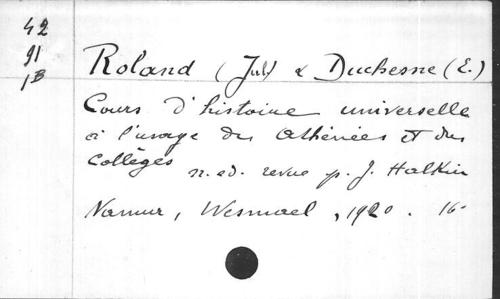 42
91
1B
Roland (Jul) & Duchesne (E.)
Cours d'histoire universelle
à l'usage des Athénées et des
Collèges n. ed. revue p. J. Halkin
Namur, Wesmael, 1920. 16°